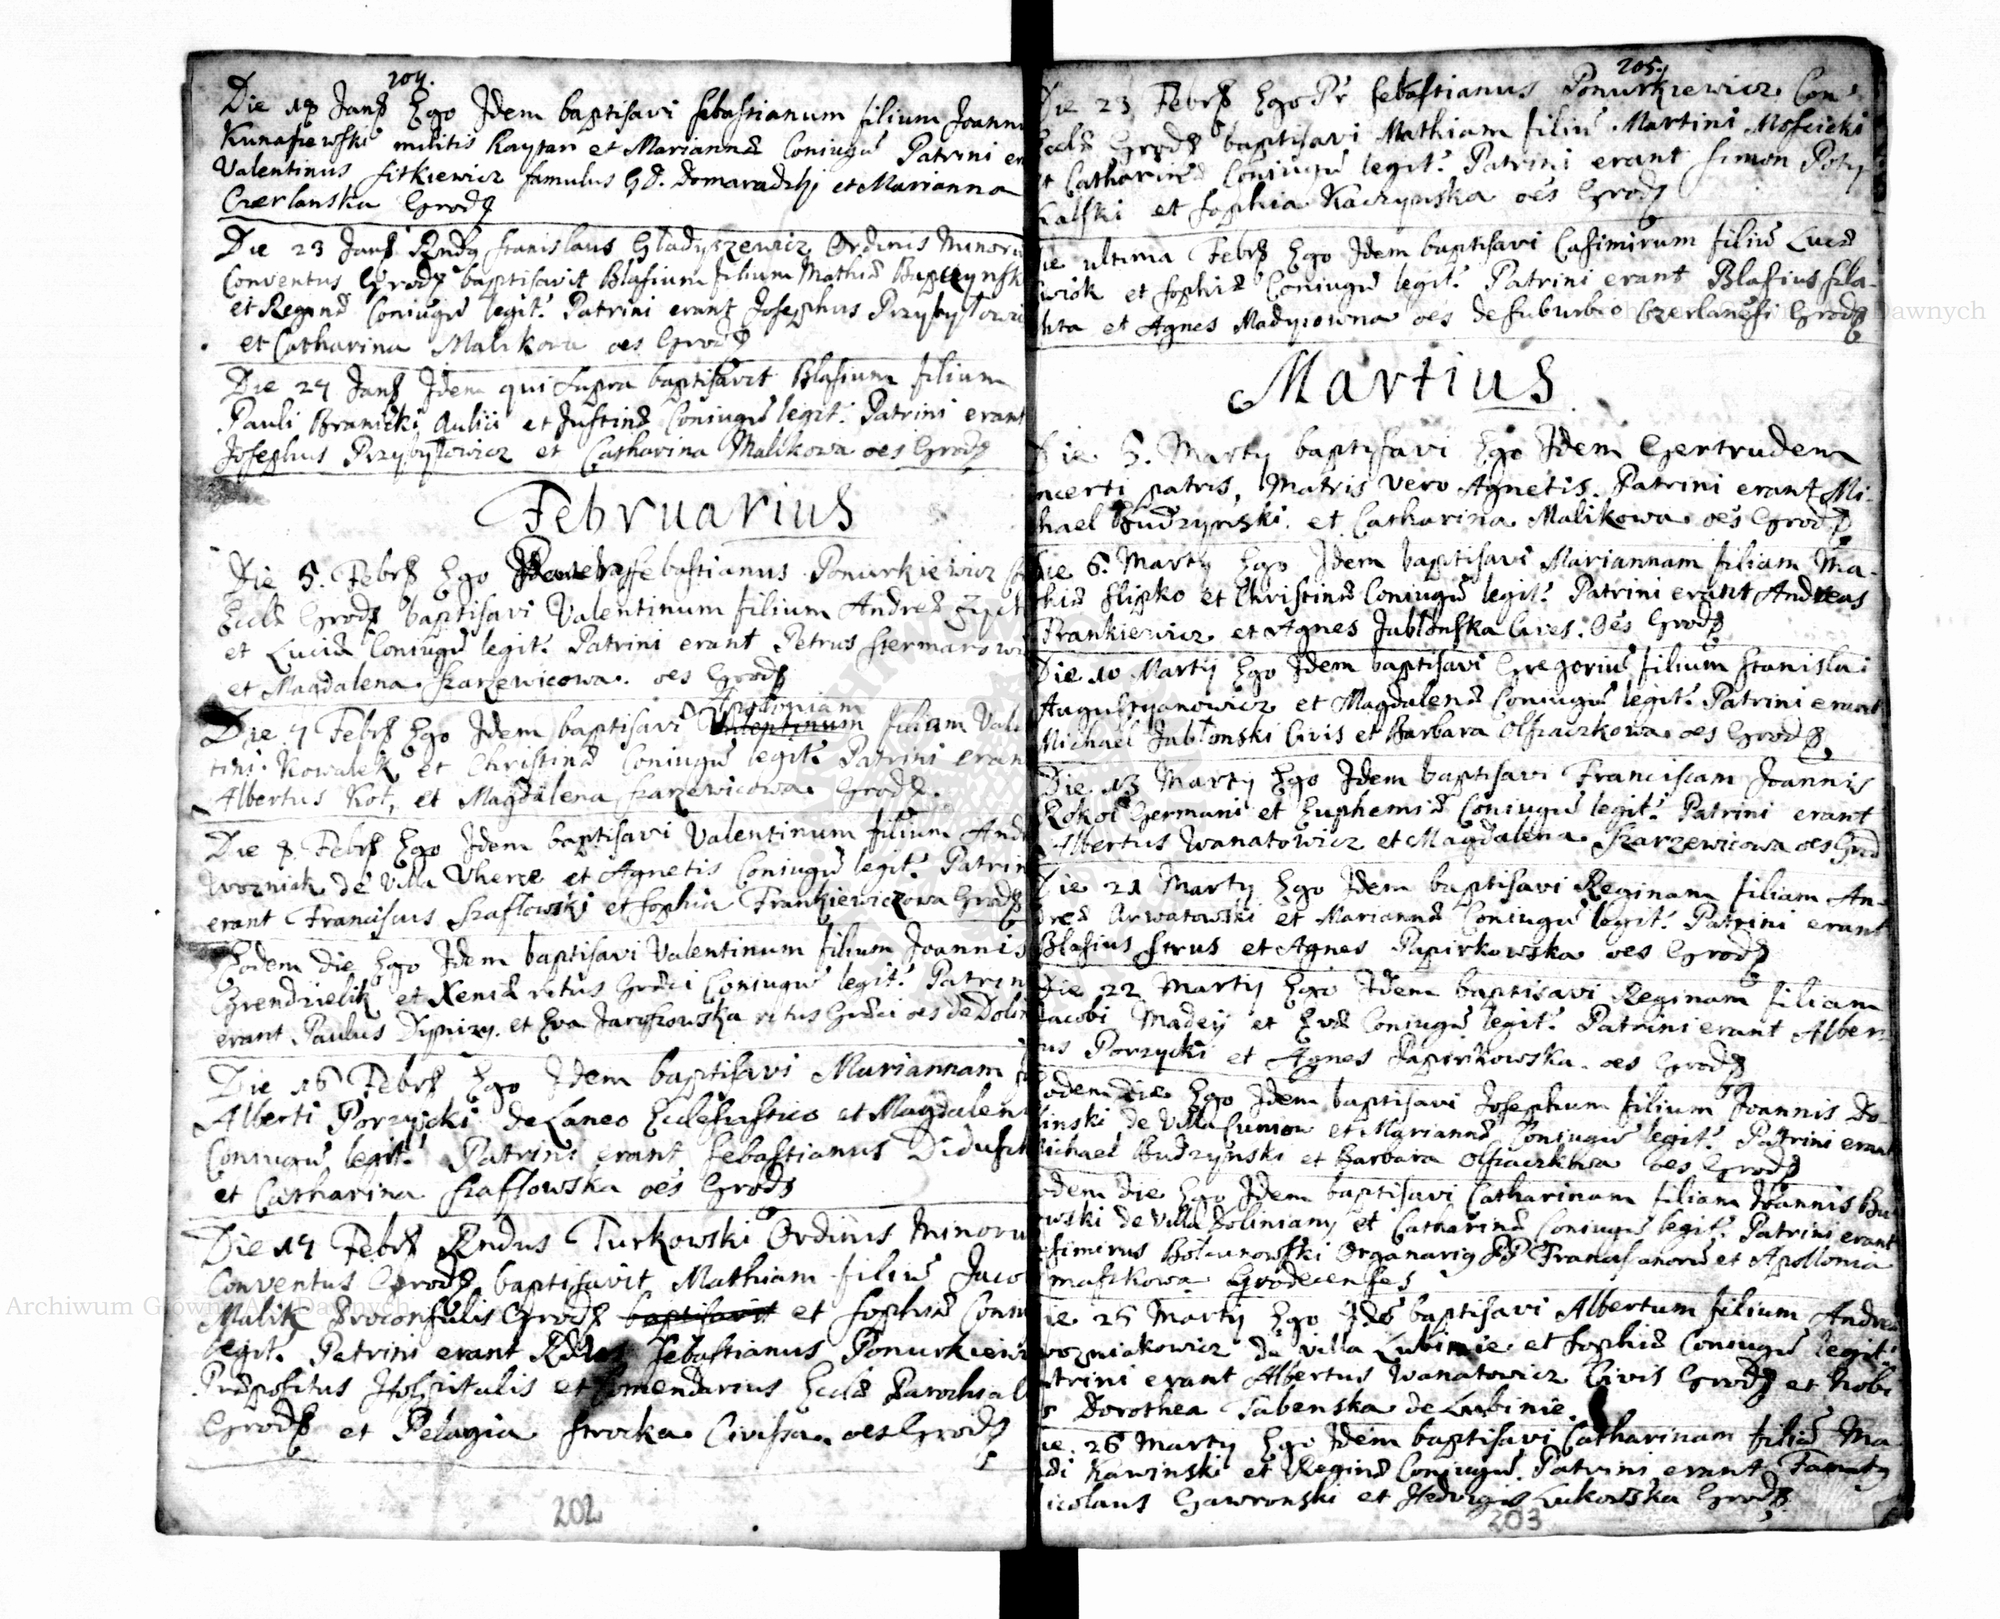 204.
Die 18 Janȝ Ego Idem baptisavi Sebastianum filium Joann
militis et Mariannæ Coniugũ Patrini er
Valentinus Sitkiewicz famulus GD. Domaradzki et Marianna
Czerlanska Grodȝ
Die 23 Janȝ Rndꝯ Stanislaus Gladyszewicz Ordinis Minorũ
Conventus Grodȝ baptisavit Blasium filium Mathiæ
et Reginæ Coniugũ legit: Patrini erant Josephus Przybyłowic
et Catharina Malikowa oẽs Grodȝ
Die 24 Janȝ Idem qui supra baptisavit Blasium filium
Pauli Branicki Aulici et Justinæ Coniugũ legit: Patrini erant
Josephus Przybyłowicz et Catharina Malikowa oes Grodȝ
Februarius
Die 5. Febrȝ Ego Sebastianus Ponurkiewicz
Eccłæ Grodȝ baptisavi Valentinum filium Andreæ
et Luciæ Coniugũ legit: Patrini erant Petrus
et Magdalena Szarzewicowa. oes Grodȝ
Apoloniam
Die 7 Febrȝ Ego Idem baptisavi Valentinum filiam Vale
tini Kowalek et Christinæ Coniugũ legit: Patrini eran
Albertus Kot, et Magdalena Szarzewicowa Grodȝ.
Die 8 Febrȝ Ego Idem baptisavi Valentinum filium Andr
Wozniak de Villa Uherce et Agnetis Coniugũ legit: Patrin
erant Franciscus Szafłowski et Sophia Frankiewiczowa Grodȝ
Eodem die Ego Idem baptisavi Valentinum filium Joannis
Grendzielik et Xeniæ ritus Græci Coniugũ legit: Patrin
erant Paulus et Eva Jaryszowska ritus Græci oes de Dolin
Die 16 Febrȝ Ego Idem baptisavi Mariannam
Alberti Porzycki de Laneo Ecclesiastico et Magdalen
Coniugũ legit: Patrini erant Sebastianus
et Catharina Szafłowska oẽs Grodȝ
Die 17 Febrȝ Rndus Turkowski Ordinis Minorũ
Conventus Grodȝ baptisavit Mathiam filiũ Jaco
Malik Proconsulis Grodȝ baptisavit et Sophiæ Coniu
legit: Patrini erant Sebastianus Ponurkiewi
Præpositus Hospitalis et Comendarius Eccłæ Parochial
Grodȝ et Pelagia Strocka Civissa oes Grodȝ
202
205.
Die 23 Febrȝ Ego Pr Sebastianus Ponurkiewicz Com
Eccłæ Grodȝ baptisavi Mathiam filiũ Martini Moscicki
et Catharinæ Coniugũ legit: Patrini erant Simon Poty
kalski et Sophia Kaczynska oẽs Grodȝ
Die ultima Febrȝ Ego Idem baptisavi Casimirum filiũ Lucæ
et Sophiæ Coniugũ legit: Patrini erant Blasius Szla-
chta et Agnes Madyiowna oes de suburbio Czerlanesi Grodȝ
Martius
Die 5. Martij baptisavi Ego Idem Gertrudem
incerti patris, Matris vero Agnetis. Patrini erant Mi-
chael Budzynski et Catharina Malikowa oẽs Grodȝ
Die 6. Martij Ego Idem baptisavi Mariannam filiam Ma-
thiæ Slipko et Christinæ Coniugũ legit: Patrini erant Andreas
Frankiewicz et Agnes Jabłonska Cives. Oẽs Grodȝ
Die 10 Martij Ego Idem baptisavi Gregoriũ filium Stanislai
Augustyanowicz et Magdalenæ Coniugũ legit: Patrini erant
Michael Jabłonski Civis et Barbara Olszaczkowa oes Grodȝ
Die 13 Martij Ego Idem baptisavi Franciscam Joannis
Rokoł Germani et Euphemiæ Coniugũ legit: Patrini erant
Albertus Iwanatowicz et Magdalena Szarzewicowa oes Grod
Die 21 Martij Ego Idem baptisavi Reginam filiam An-
dreæ Arwatowski et Mariannæ Coniugũ legit: Patrini erant
Blasius Strus et Agnes Papirkowska oes Grodȝ
Die 22 Martij Ego Idem baptisavi Reginam filiam
Jacobi Madeij et Evæ Coniugũ legit: Patrini erant Alber-
tus Porzycki et Agnes Papirkowska oes Grodȝ
Eodem die Ego Idem baptisavi Josephum filium Joannis Do-
linski de Villa Cuniow et Mariannæ Coniugũ legit: Patrini erant
Michael Budzynski et Barbara Olszaczkowa oes Grodȝ
Eodem die Ego Idem baptisavi Catharinam filiam Joannis
de Villa Doliniany et Catharinæ Coniugũ legit: Patrini erant
Casimirus Organariꝯ PP Franciscanorũ et Apollonia
Grodecenses
Die 25 Martij Ego Idẽ baptisavi Albertum filium Andreæ
Wozniakowicz de villa Lubinie et Sophiæ Coniugũ legit:
Patrini erant Albertus Iwanatowicz Civis Grodȝ et Nobi
Dorothea Sabenska de Lubinie.
Die 26 Martij Ego Idem baptisavi Catharinam filiã Ma
Kawinski et Reginæ Coniugũ. Patrini erant
Nicolaus Gawronski et Hedvigis Lukowska Grodȝ.
203
Archiwum Główne Akt Dawnych